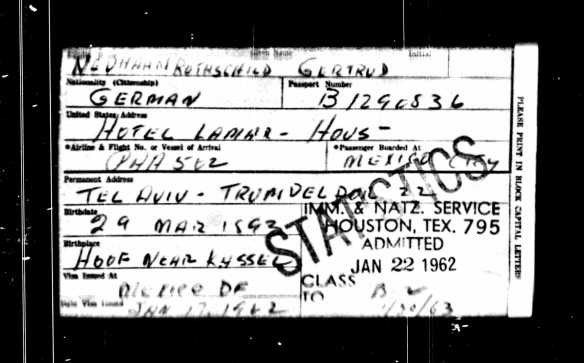 Given Name Initial
ROTHSCHILD GERTRUD
Nationality (Citizenship) Passport Number
GERMAN B1290836
United States Address
HOTEL LAMAR - HOUS-
*Airline & Flight No. or Vessel of Arrival *Passenger Boarded At
502 MEXICO City
Permanent Address
TEL AVIV - TRUMDELDOR 22
Birthdate
29 MAR
Birthplace
HOOF NEAR KASSEL
Visa Issued At
MEXICO DF
Date Visa Issued
JAN 17, 1962
STATISTICS
IMM. & NATZ. SERVICE
HOUSTON, TEX. 795
ADMITTED
JAN 22 1962
CLASS B 2
TO
PLEASE PRINT IN BLOCK CAPITAL LETTERS